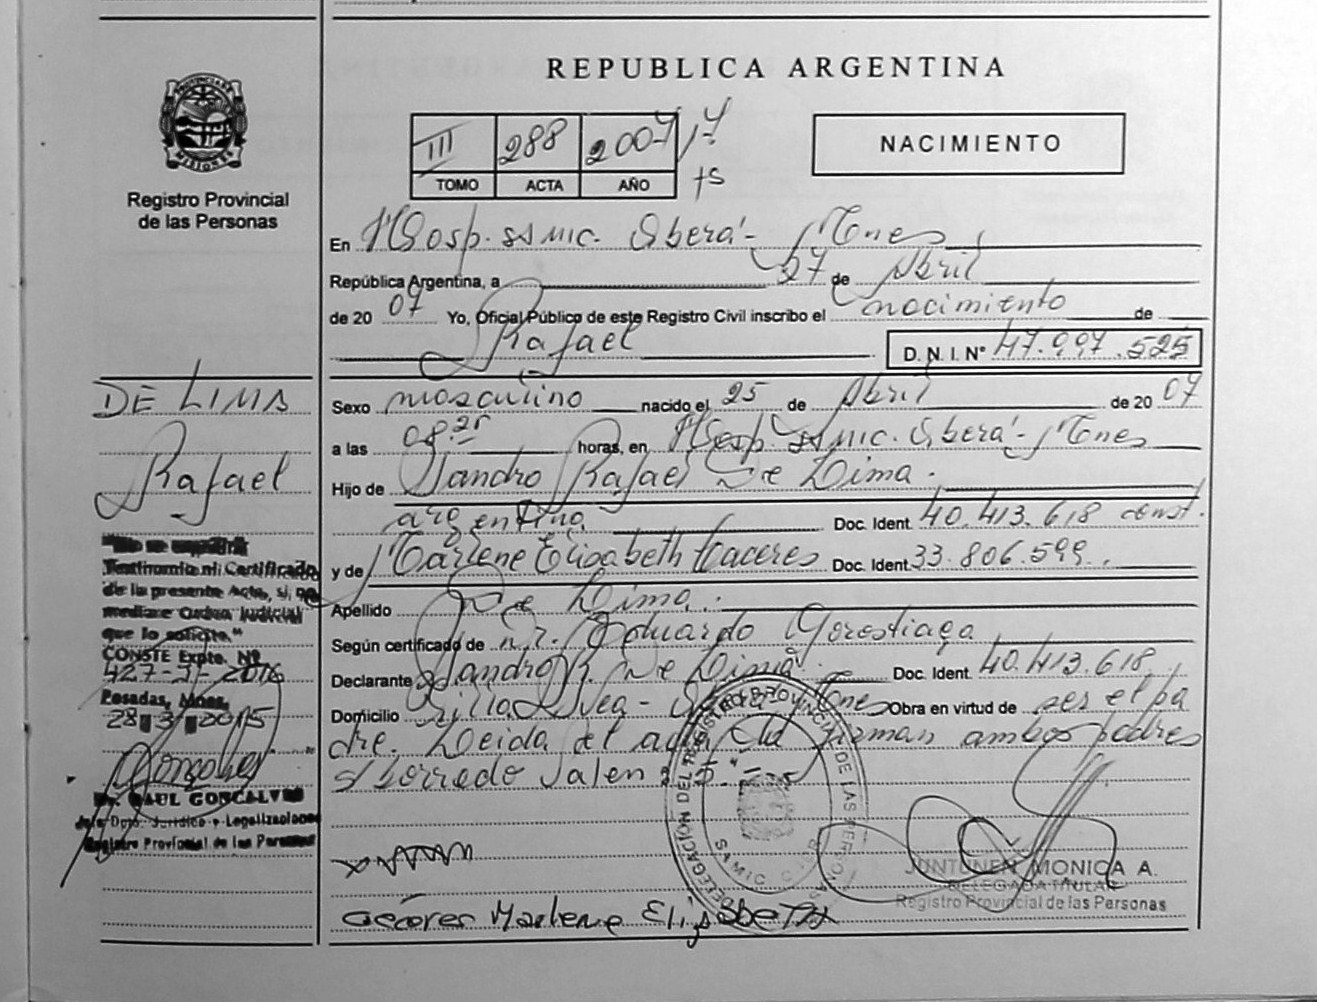 REPUBLICA ARGENTINA
PROVINCIA DE MISIONES
Registro Provincial
de las Personas
III 288 2007
TOMO ACTA AÑO
NACIMIENTO
En Hosp. SAMIC. Oberá - Mnes
República Argentina, a 27 de Abril
de 20 07 Yo, Oficial Público de este Registro Civil inscribo el nacimiento de
Rafael D.N.I. Nº 47.997.525
DE LIMA
Rafael
Sexo masculino nacido el 25 de Abril de 20 07
a las 08.25 horas, en Hosp. SAMIC. Oberá - Mnes
Hijo de Sandro Rafael De Lima.
argentino Doc. Ident. 40.413.618 const.
y de Marlene Elisabeth Caceres Doc. Ident. 33.806.599.
Apellido De Lima.
Según certificado de Dr. Eduardo Gorostiaga
Declarante Sandro R. De Lima Doc. Ident. 40.413.618
Domicilio Villa Svea - Mnes Obra en virtud de ser el pa
dre. Leida el acta firman ambos padres
s/borrado Valen
"No se expedirá
Testimonio ni Certificado
de la presente Acta, si no
mediare Orden Judicial
que lo solicite."
CONSTE Expte. Nº
Posadas, Mnes,
28 3 2015
Dr. RAUL GONCALVES
Jefe Dpto. Jurídico y Legalizaciones
Registro Provincial de las Personas
DELEGACIÓN DEL REGISTRO PROVINCIAL DE LAS PERSONAS
SAMIC
JUNTUNEN MONICA A.
DELEGADA TITULAR
Registro Provincial de las Personas
Caceres Marlene Elisabeth